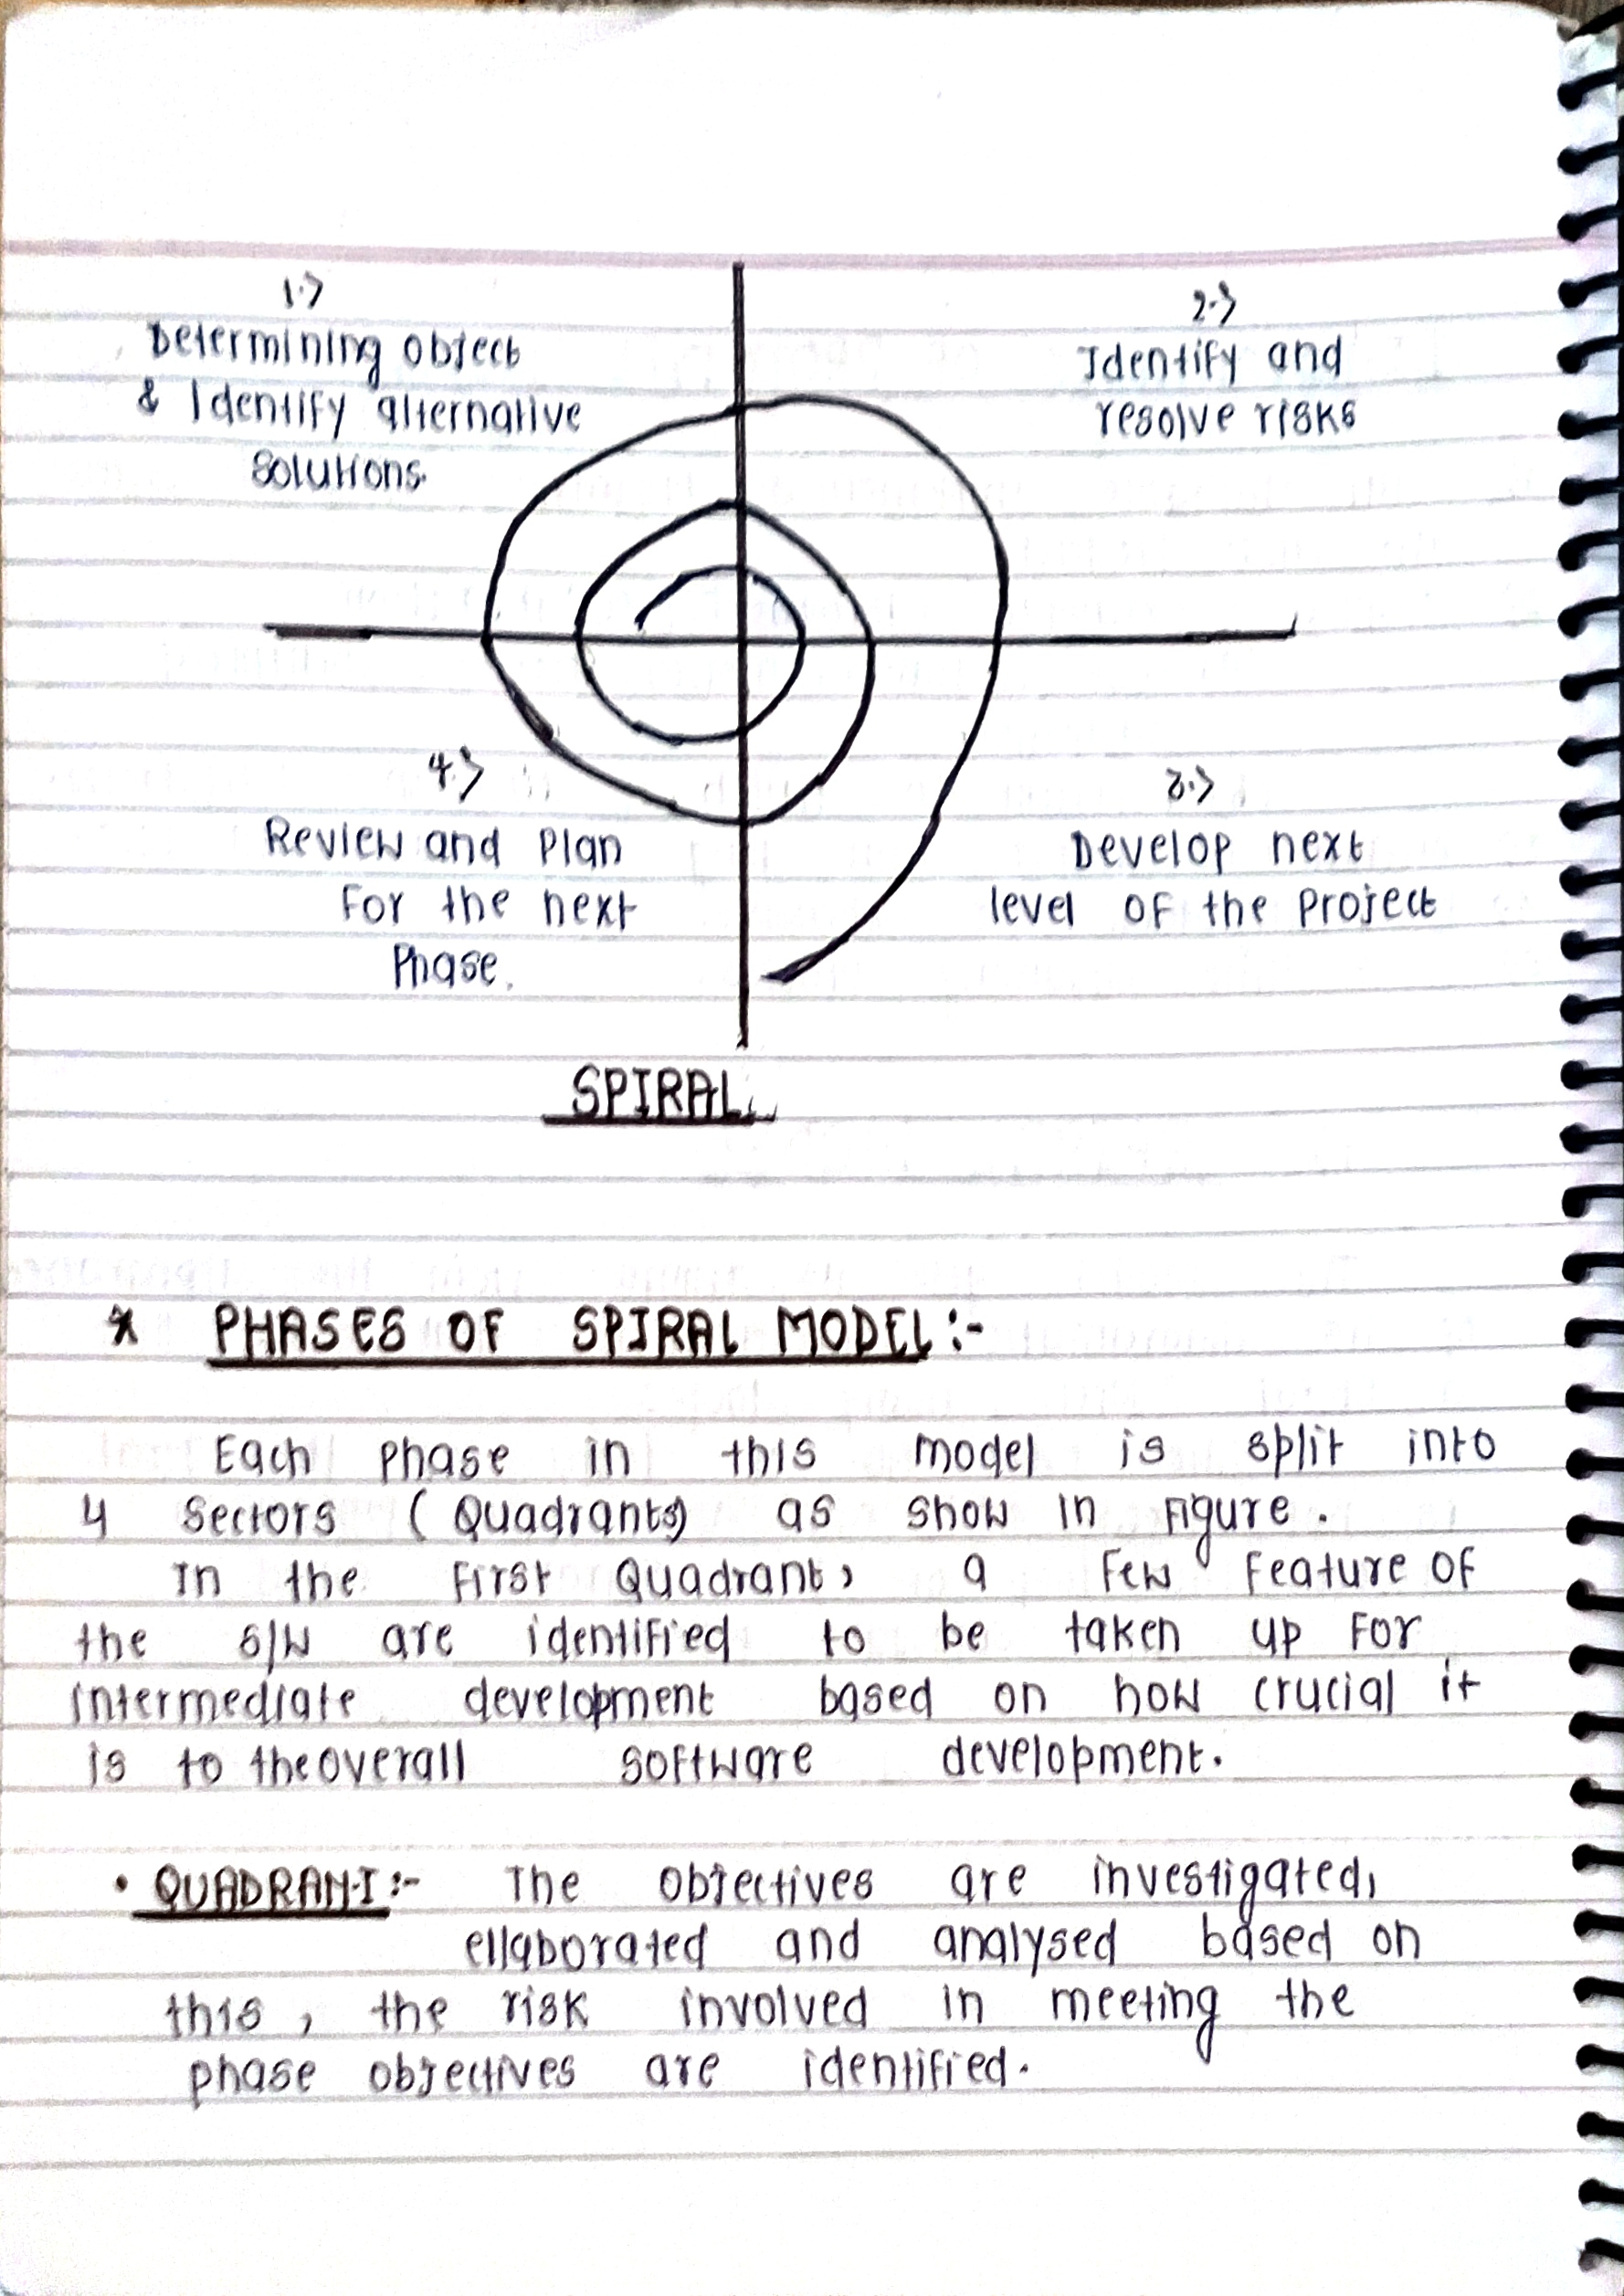 1.>
Determining object
& Identify alternative
solutions.
2.>
Identify and
resolve risks
4.>
Review and Plan
For the next
Phase.
3.>
Develop next
level OF the Project
SPIRAL
* PHASES OF SPIRAL MODEL:-
Each phase in this model is split into
4 Sectors (Quadrants) as show in Figure.
In the First Quadrant, a Few Feature OF
the S/W are identified to be taken up For
intermediate development based on how crucial it
is to the overall software development.
• QUADRAN-I:- The objectives are investigated,
ellaborated and analysed based on
this, the risk involved in meeting the
phase objectives are identified.